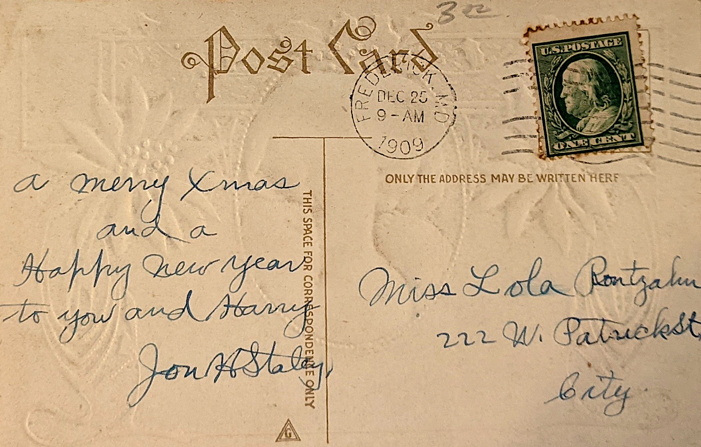 3oc
Post Card
FREDERICK, MD.
DEC 25
9-AM
1909
U.S. POSTAGE
ONE CENT
ONLY THE ADDRESS MAY BE WRITTEN HERE
THIS SPACE FOR CORRESPONDENCE ONLY
a merry Xmas
and a
Happy New year
to you and Harry
Jon H Staley,
Miss Lola Rontzahn
222 W. Patrick St
City.
G